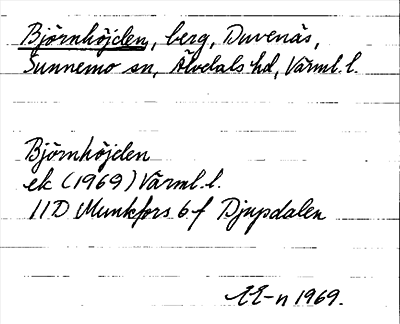 Björnhöjden, berg, Duvenäs,
Sunnemo sn, Älvdals hd, Värml. l.
Björnhöjden
ek (1969) Värml. l.
11D Munkfors 6 f Djupdalen
EE-n 1969.